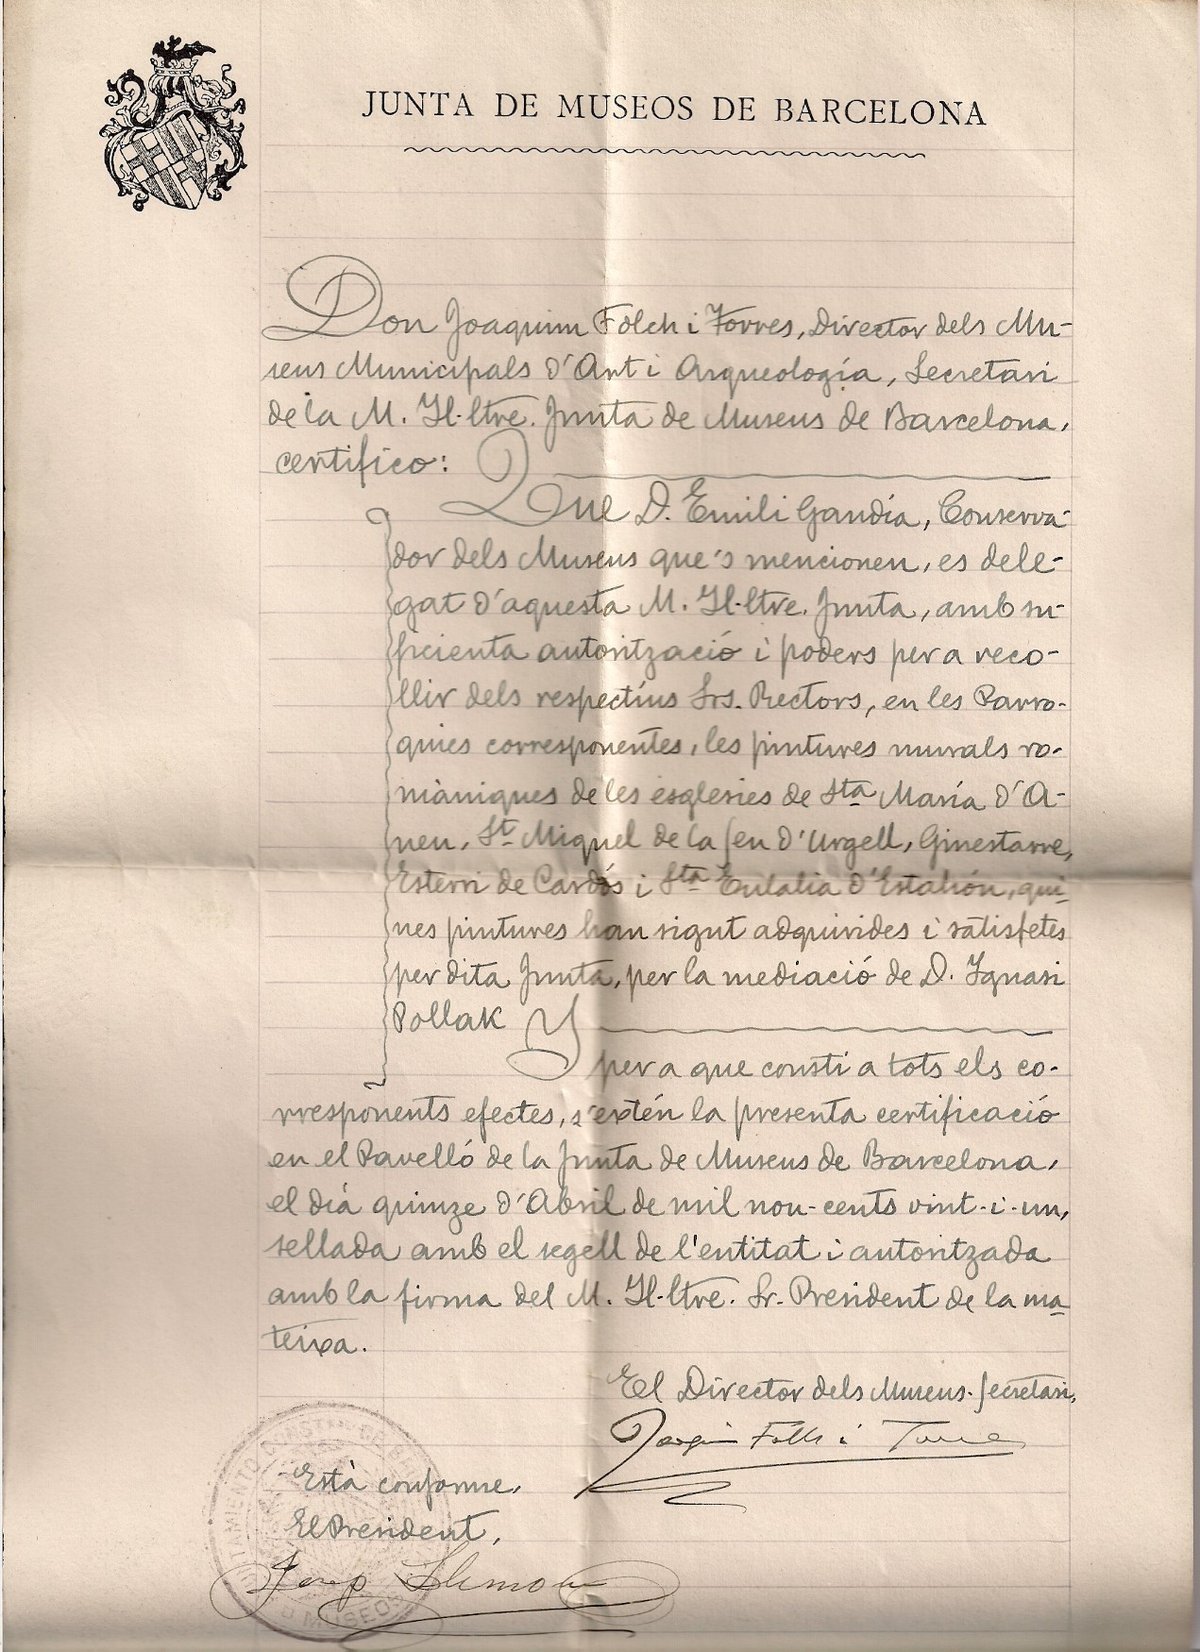 JUNTA DE MUSEOS DE BARCELONA
Don Joaquim Folch i Torres, Director dels Mu-
seus Municipals d'Art i Arqueología, Secretari
de la M. Il·ltre. Junta de Museus de Barcelona,
certifico:
Que D. Emili Gandía, Conserva-
dor dels Museus que's mencionen, es dele-
gat d'aquesta M. Il·ltre. Junta, amb su-
ficienta autorització i poders per a reco-
llir dels respectius Srs. Rectors, en les Parro-
quies corresponentes, les pintures murals ro-
màniques de les esglesies de Sta María d'A-
neu, St Miquel de la Seu d'Urgell, Ginestarre,
Esterri de Cardós i Sta Eulalia d'Estahón, qui-
nes pintures han sigut adquirides i satisfetes
per dita Junta, per la mediació de D. Ignasi
Pollak
Y per a que consti a tots els co-
rresponents efectes, s'extén la presenta certificació
en el Pavelló de la Junta de Museus de Barcelona,
el dia quinze d'Abril de mil nou-cents vint-i-un,
sellada amb el segell de l'entitat i autoritzada
amb la firma del M. Il·ltre. Sr. President de la ma-
teixa.
El Director dels Museus-Secretari,
Joaquim Folch i Torres
Està conforme,
El President,
Josep Llimona
MUSEOS